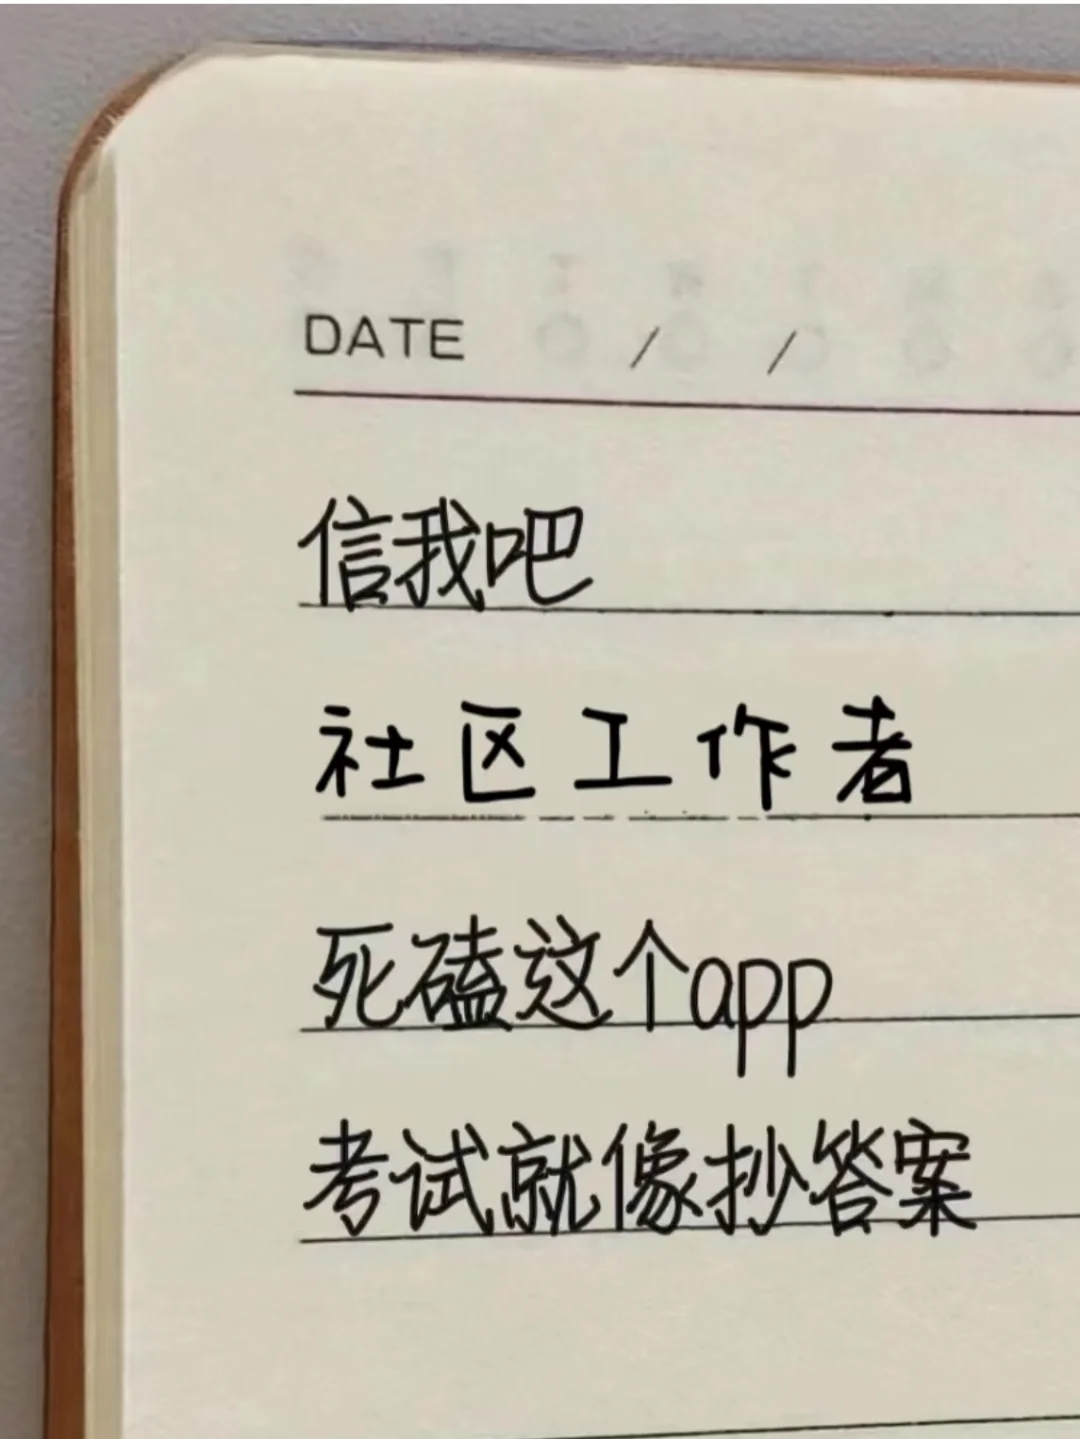 DATE / /
信我吧
社区工作者
死磕这个app
考试就像抄答案